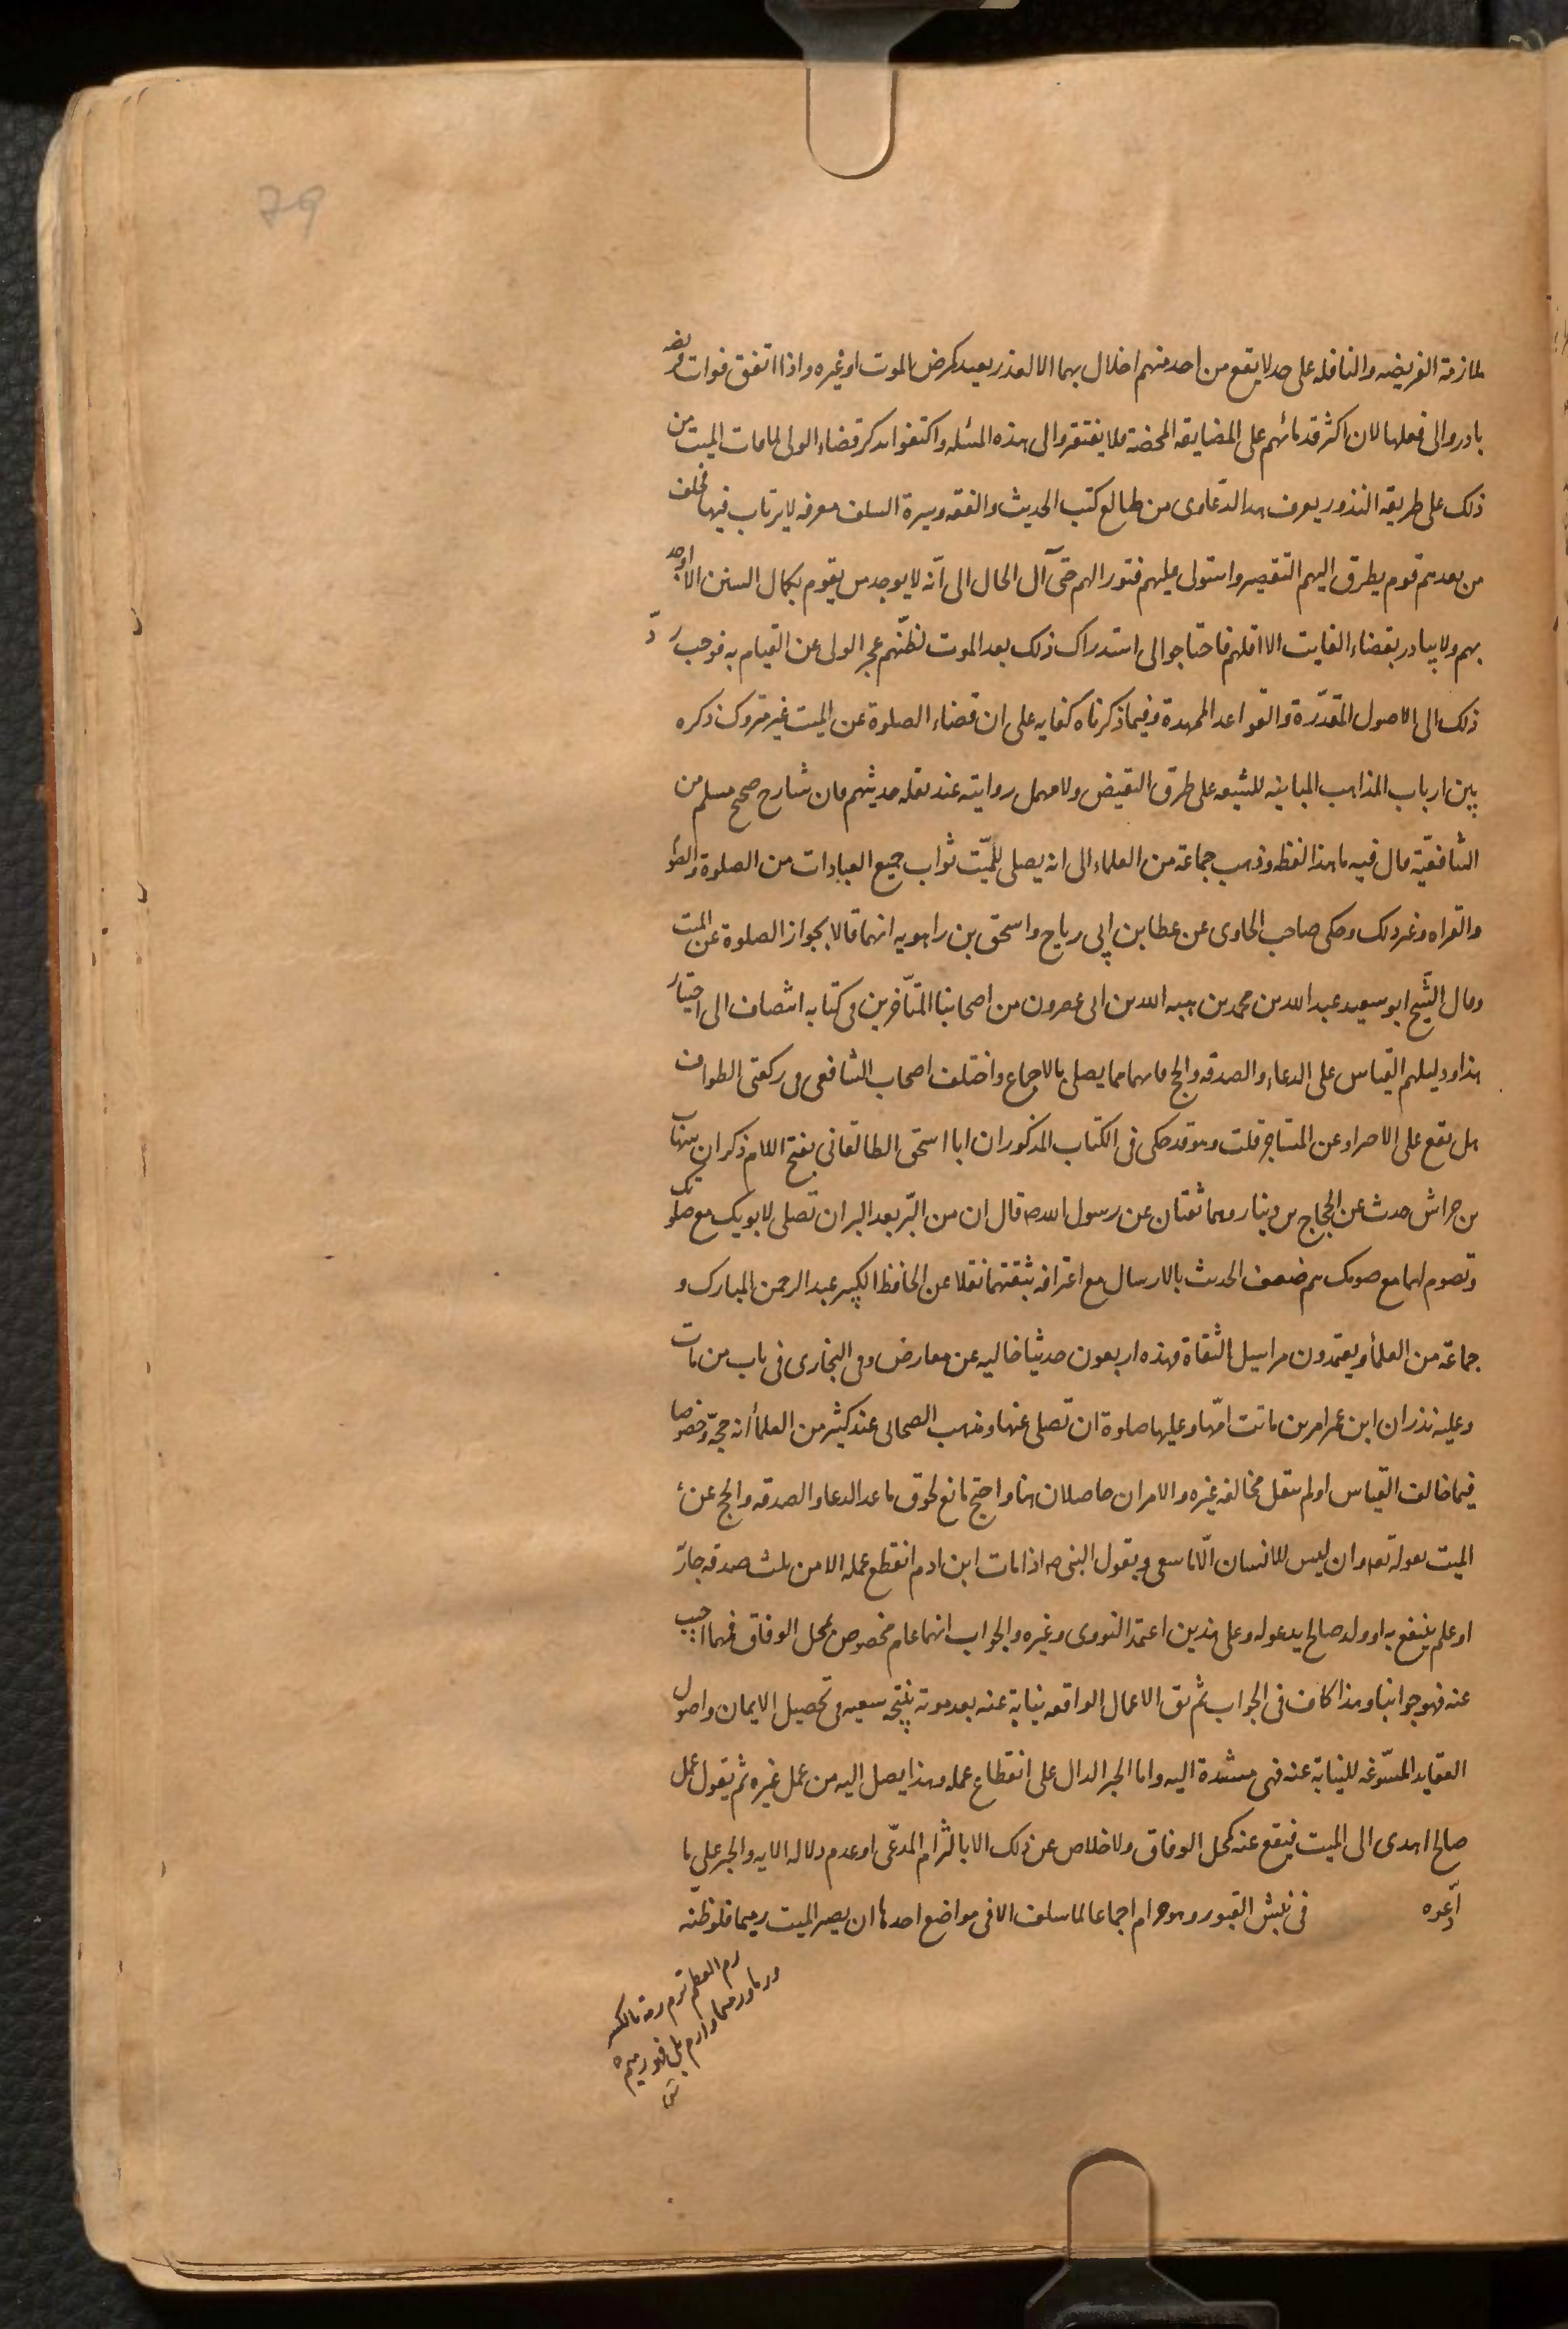 79
لملازمة الفريضه والنافله على حد لا يقع من احد منهم اخلال بهما الا لعذر بعيد كمرض الموت او غيره واذا اتفق فوات فريضه
بادروا الى فعلها لان اكثر قدمائهم على المضايقه المحضة فلم يفتقروا الى هذه المسئله واكتفوا بذكر قضاء الولى لما مات الميت من
ذلك على طريقه النذور يعرف هذا الدعاوى من طالع كتب الحديث والفقه وسيرة السلف معرفه لا يرتاب فيها فخلف
من بعدهم قوم يطرق اليهم التقصير واستولى عليهم فتور الهمم حتى آل الحال الى انّه لا يوجد من يقوم بكمال السنن الا اوحد
بهم ولا يبادر بقضاء الفايت الا اقلهم فاحتاجوا الى استدراك ذلك بعد الموت لظنّهم عجز الولى عن القيام به فوجب ردّ
ذلك الى الاصول المقدّرة والقواعد الممهدة وفيما ذكرناه كفايه على ان قضاء الصلوة عن الميت غير متروك ذكره
بين ارباب المذاهب المباينه للشيعه على طرق النقيض ولا مهمل روايته عند نقله حديثهم فان شارح صحيح مسلم من
الشافعيّة قال فيه ما هذا لفظه وذهب جماعة من العلماء الى انه يصلى للميّت ثواب جميع العبادات من الصلوة والصّو
والقراه وغير ذلك وحكى صاحب الحاوى عن عطا بن ابى رباح واسحق بن راهويه انهما قالا بجواز الصلوة عن الميت
وقال الشيخ ابو سعيد عبد الله بن محمد بن هبه الله بن ابى عصرون من اصحابنا المتاخرين فى كتابه انتصاف الى اختيار
هذا ودليلهم القياس على الدعاء والصدقه والحج فانهما مما يصلى بالاجماع واختلف اصحاب الشافعى فى ركعتى الطواف
هل تقع على الاحراد عن المستاجر قلت وهو قد حكى فى الكتاب المذكور ان ابا اسحق الطالقانى بفتح اللام ذكر ان شهاب
بن حراش حدث عن الحجاج بن دينار وهما ثقتان عن رسول الله ص قال ان من البّر بعد البر ان تصلى لابويك مع صلوتك
وتصوم لهما مع صومك ثم ضعف الحديث بالارسال مع اعترافه بثقتهما نقلا عن الحافظ الكبير عبد الرحمن المبارك و
جماعة من العلما ويعتمدون مراسيل الثقاة وهذه اربعون حديثا خاليه عن معارض وفى البخارى فى باب من مات
وعليه نذر ان ابن عمر امر من ماتت امّها وعليها صلوة ان تصلى عنها ومذهب الصحابى عند كثير من العلما أنه حجّة وخصوصا
فيما خالف القياس او لم ينقل مخالفه غيره والامران حاصلان هنا واحتج مانع لحوق ما عدا الدعا والصدقه والحج عن
الميت بقوله تعه وان ليس للانسان الّا ما سعى وبقول النبى ص اذا مات ابن ادم انقطع عمله الا من ثلث صدقه جارّ
او علم ينتفع به او ولد صالح ايدعو له وعلى هذين اعتمد النووى وغيره والجواب انهما عام مخصوص بمحل الوفاق فمهما اجيب
عنه فهو جوابنا وهذا كاف فى الجواب ثم نق الاعمال الواقعه نيابة عنه بعد موته نتيجه سعيه فى تحصيل الايمان واصول
العقايد المسّوغه للنيابة عنه فهى مستندة اليه واما الخبر الدال على انقطاع عمله وهذا يصل اليه من عمل غيره ثم يقول عمل
صالح اهدى الى الميت فيقع عنه كمحل الوفاق ولا خلاص عن ذلك الا بالتزام المدّعى او عدم دلاله الايه والخبر على ما
ادّعوه فى نبش القبور وهو حرام اجماعا لما سلف الا فى مواضع احدها ان يصير الميت رميما فلو ظنّه
رم العظم ترم رمة بالكسر
ورما ورميما وارم بلى فهو رميم